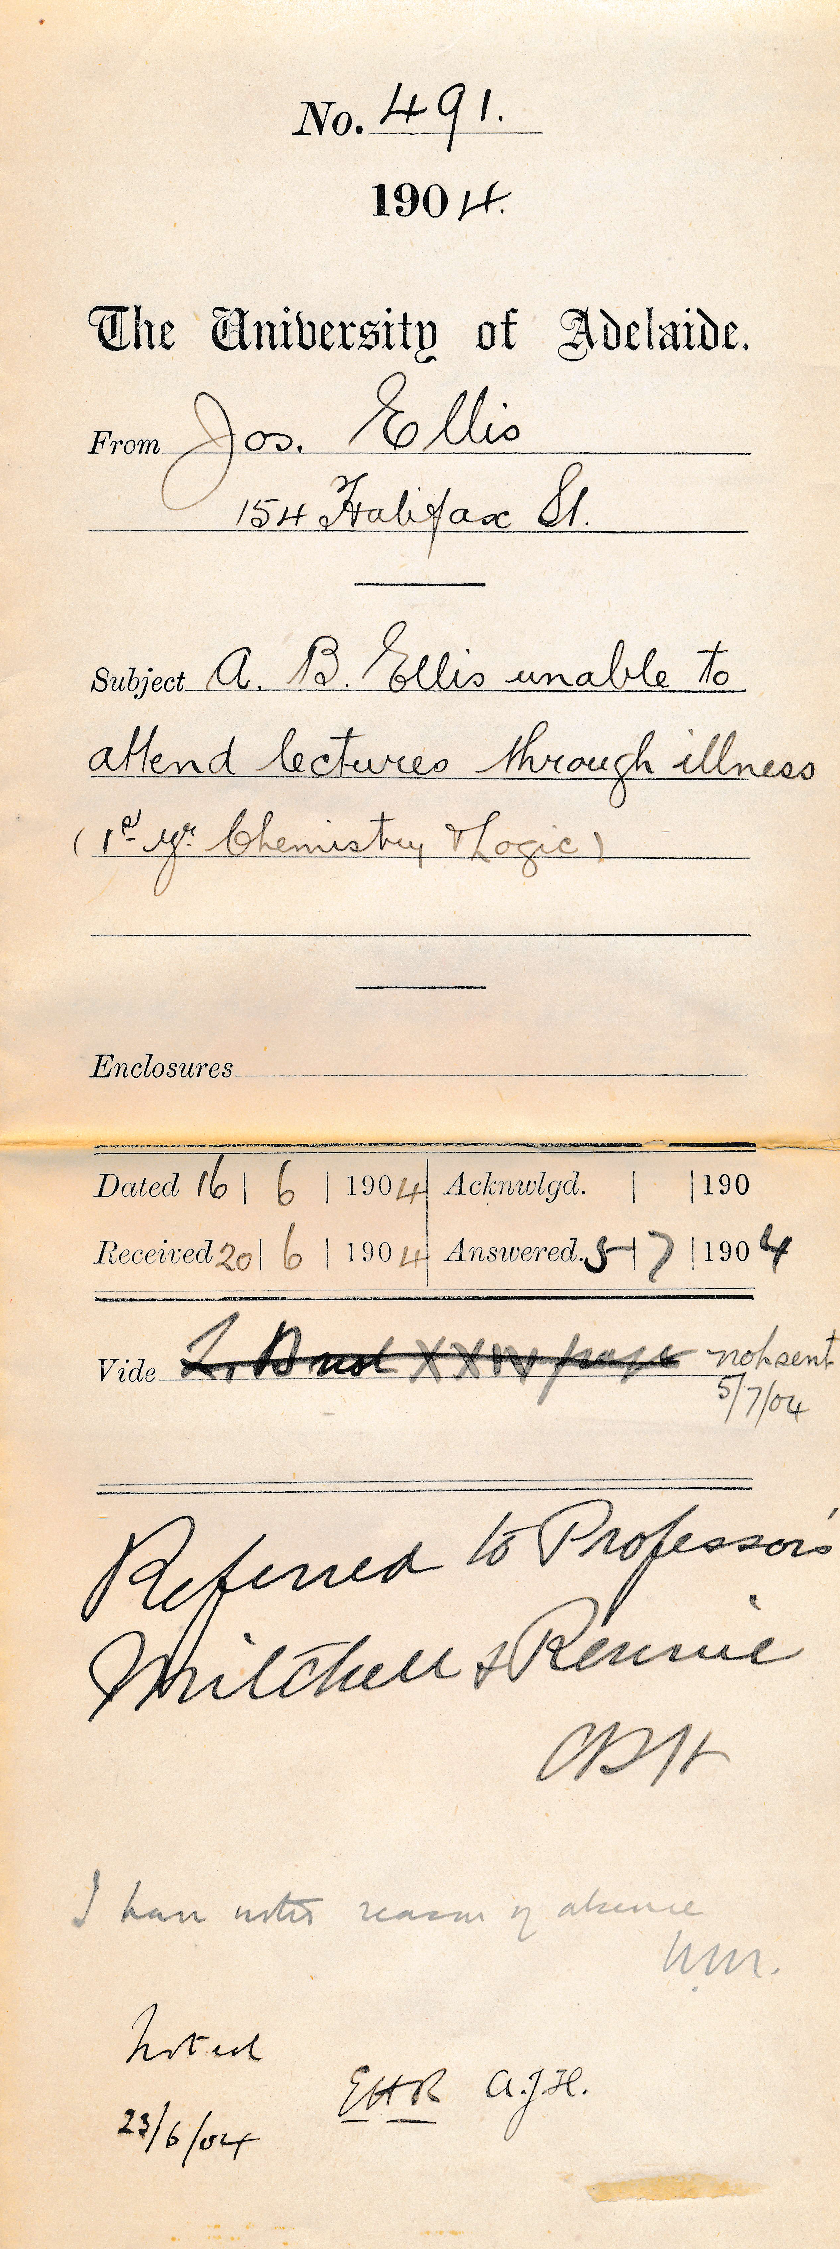 No. 491.
1904.
The University of Adelaide.
From Jos. Ellis
154 Halifax St.
Subject A. B. Ellis unable to
attend lectures through illness
(1st yr. Chemistry & Logic)
Enclosures
Dated 16 | 6 | 1904 Acknwlgd. | | 190
Received 20 | 6 | 1904 Answered. 5 | 7 | 1904
Vide L. B XXIV page not sent
5/7/04
Referred to Professors
Mitchell & Rennie
CRH
I have noted reason of absence
W.M.
Noted
EHR A.J.H.
23/6/04